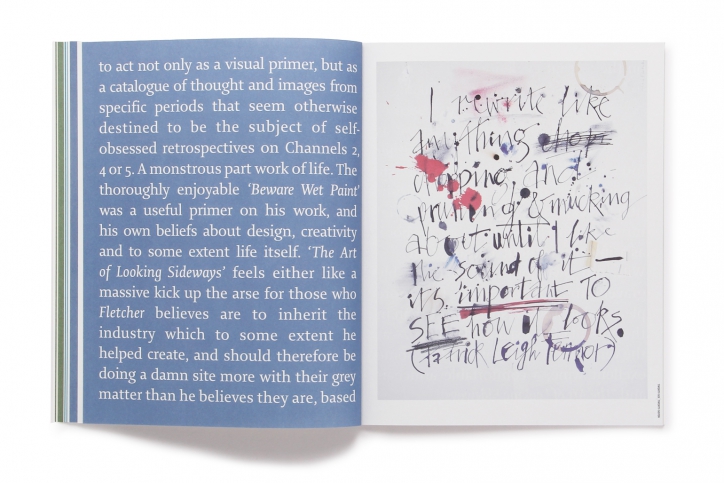 to act not only as a visual primer, but as
a catalogue of thought and images from
specific periods that seem otherwise
destined to be the subject of self-
obsessed retrospectives on Channels 2,
4 or 5. A monstrous part work of life. The
thoroughly enjoyable ‘Beware Wet Paint’
was a useful primer on his work, and
his own beliefs about design, creativity
and to some extent life itself. ‘The Art
of Looking Sideways’ feels either like a
massive kick up the arse for those who
Fletcher believes are to inherit the
industry which to some extent he
helped create, and should therefore be
doing a damn site more with their grey
matter than he believes they are, based
I rewrite like
anything
chopping and
pruning & mucking
about until I like
the sound of it —
it's important TO
SEE how it looks.
(Patrick Leigh Fermor)